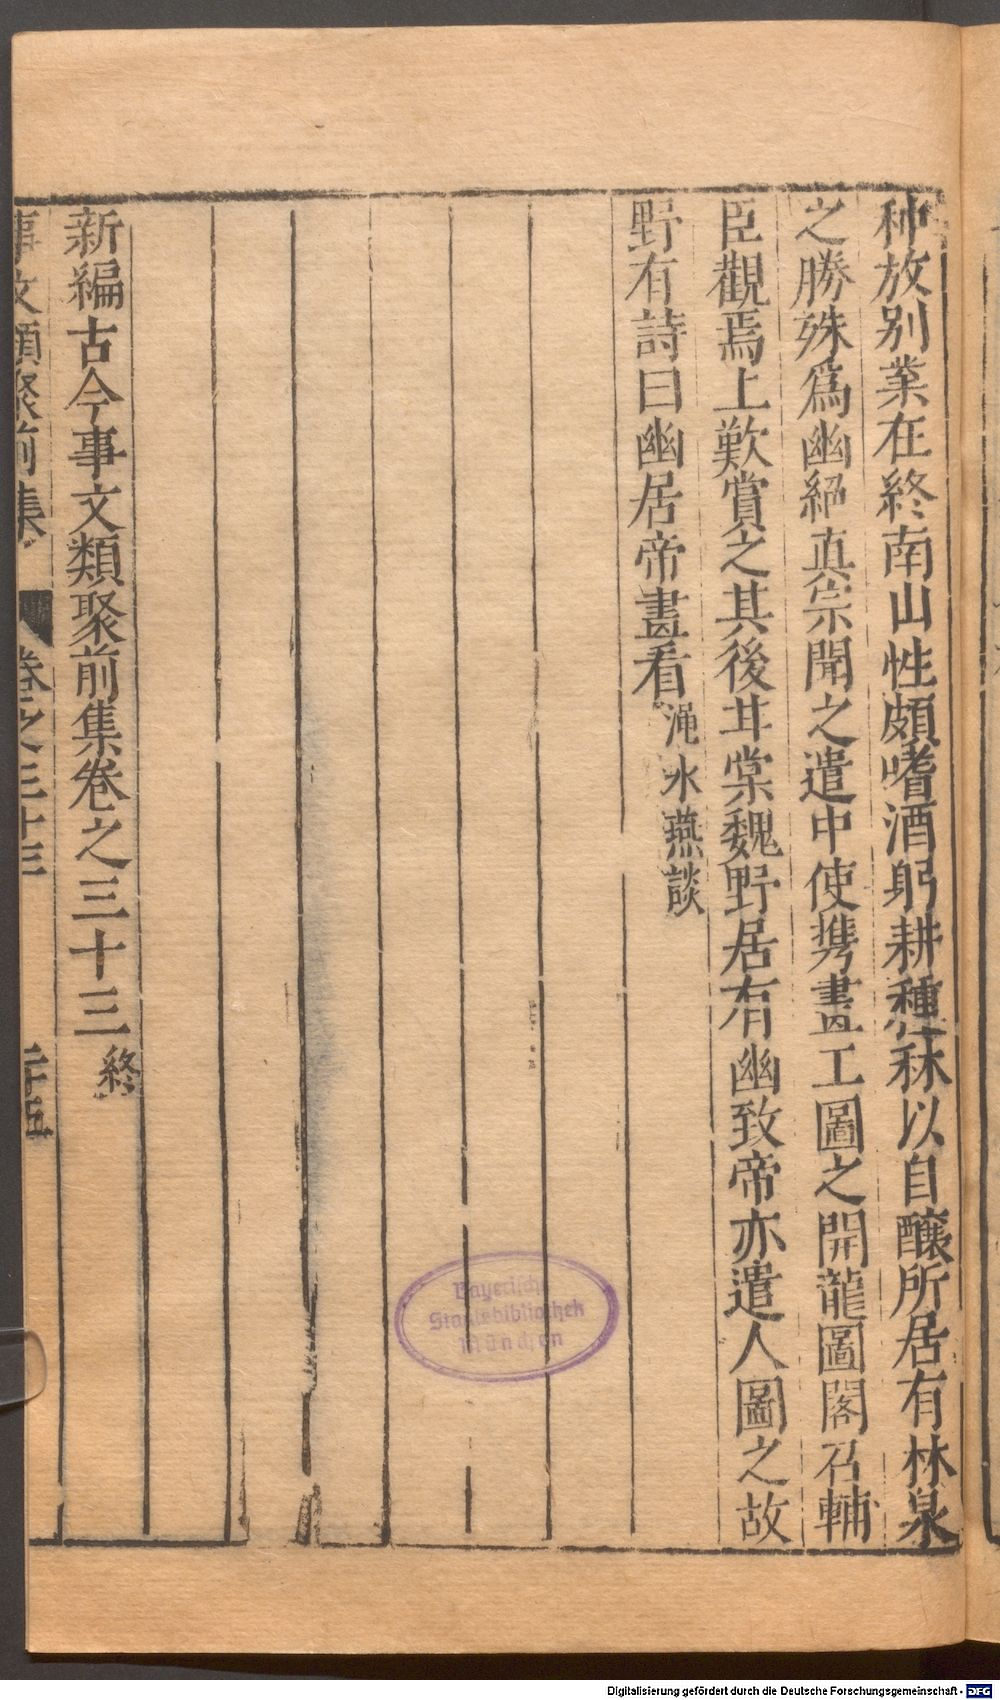 种放别業在終南山性頗嗜酒躬耕種秫以自釀所居有林泉
之勝殊爲幽絕真宗聞之遣中使携畫工圖之開龍圖閣召輔
臣觀焉上歎賞之其後甘棠魏野居有幽致帝亦遣人圖之故
野有詩曰幽居帝畫看澠水燕談
新編古今事文類聚前集卷之三十三終
事文類聚前集 卷之三十三 二十五
Bayerische
Staatsbibliothek
München
Digitalisierung gefördert durch die Deutsche Forschungsgemeinschaft - DFG